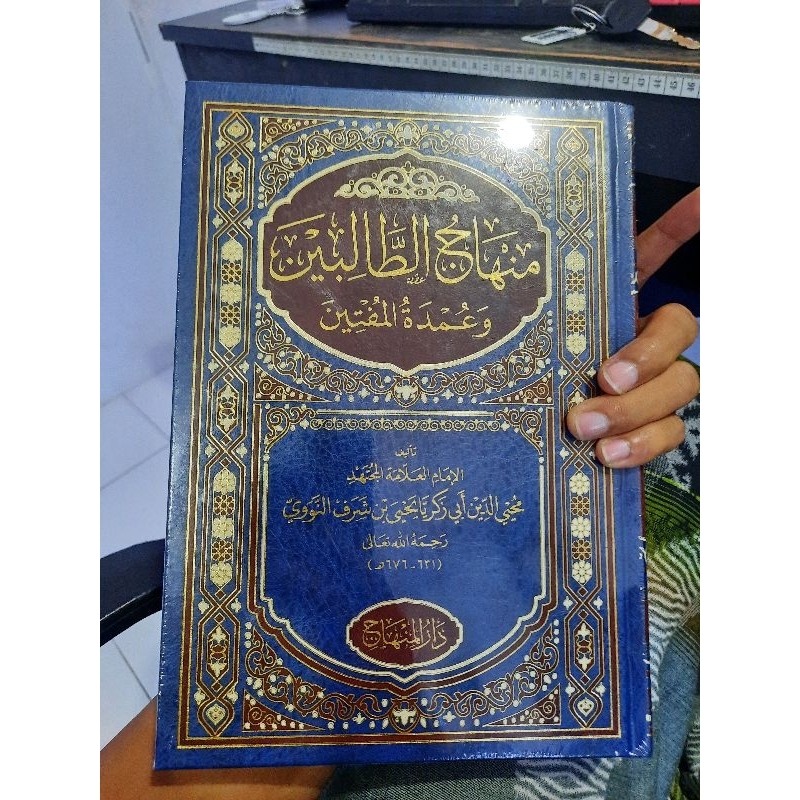 مِنْهَاجُ الطَّالِبِين
وَعُمْدَةُ المُفْتِين
تأليف
الإمام العلامة المجتهد
محيي الدين أبي زكريا يحيى بن شرف النووي
رحمه الله تعالى
(٦٣١ - ٦٧٦هـ)
دار المنهاج
36 37 38 39 40 41 42 43 44 45 46